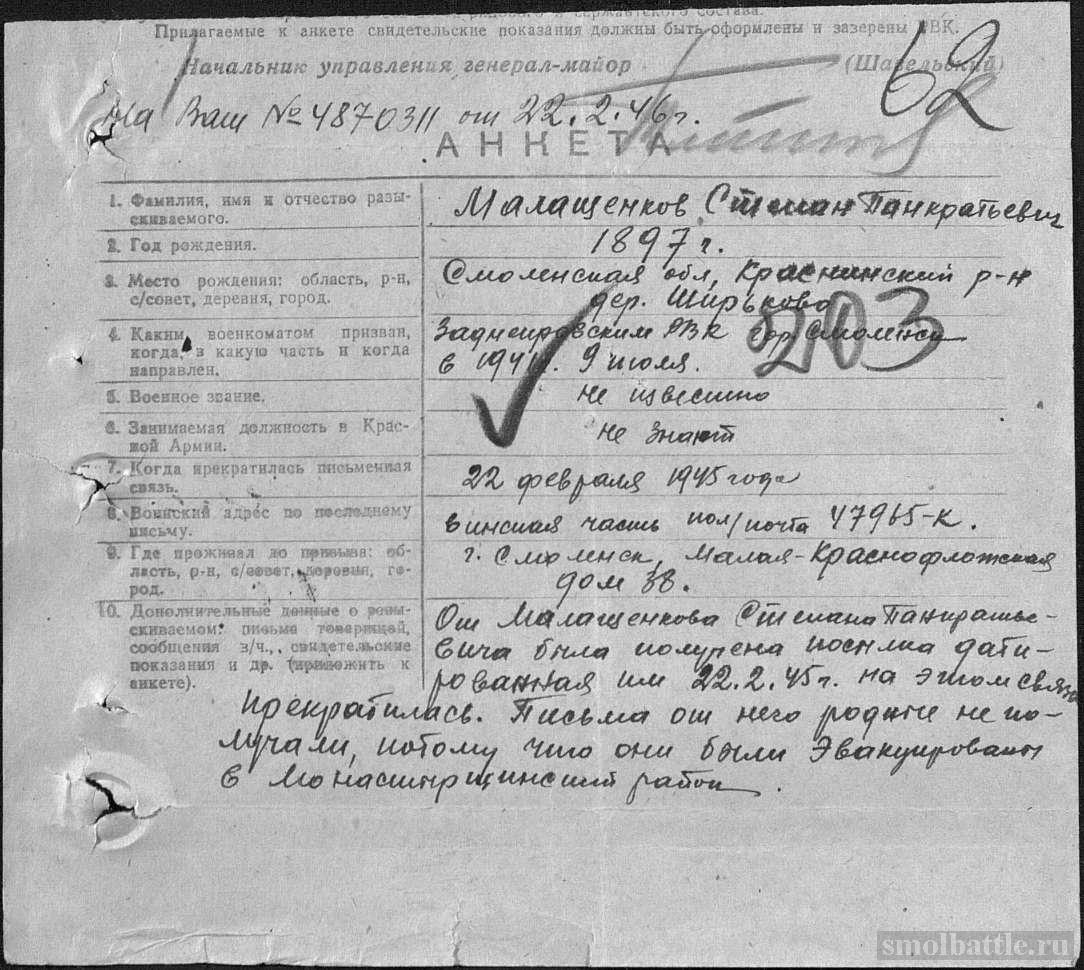 рядового и сержантского состава.
Прилагаемые к анкете свидетельские показания должны быть оформлены и заверены РВК.
Начальник управления генерал-майор (Шавельский)
62
На Ваш № 4870311 от 22.2.46 г.
АНКЕТА
1. Фамилия, имя и отчество разы-
скиваемого.
Малащенков Степан Панкратьевич
2. Год рождения.
1897 г.
3. Место рождения: область, р-н,
с/совет, деревня, город.
Смоленская обл, Краснинский р-н
дер. Ширьково
4. Каким военкоматом призван,
когда, в какую часть и когда
направлен.
Заднепровским РВК гор. Смоленска
в 1941 г. 9 июля.
203
5. Военное звание.
не известно
6. Занимаемая должность в Крас-
ной Армии.
не знают
7. Когда прекратилась письменная
связь.
22 февраля 1945 года
8. Воинский адрес по последнему
письму.
винская часть пол/почта 47965-к.
9. Где проживал до призыва: об-
ласть, р-н, с/совет, деревня, го-
род.
г. Смоленск, Малая-Краснофлотская
дом 38.
10. Дополнительные данные о разы-
скиваемом: письма товарищей,
сообщения в/ч., свидетельские
показания и др. (приложить к
анкете).
От Малащенкова Степана Панкратье-
вича была получена посылка дати-
рованная им 22.2.45 г. на этом связь
прекратилась. Письма от него родные не по-
лучали, потому что они были эвакуированы
в Монастырщинский район.
smolbattle.ru